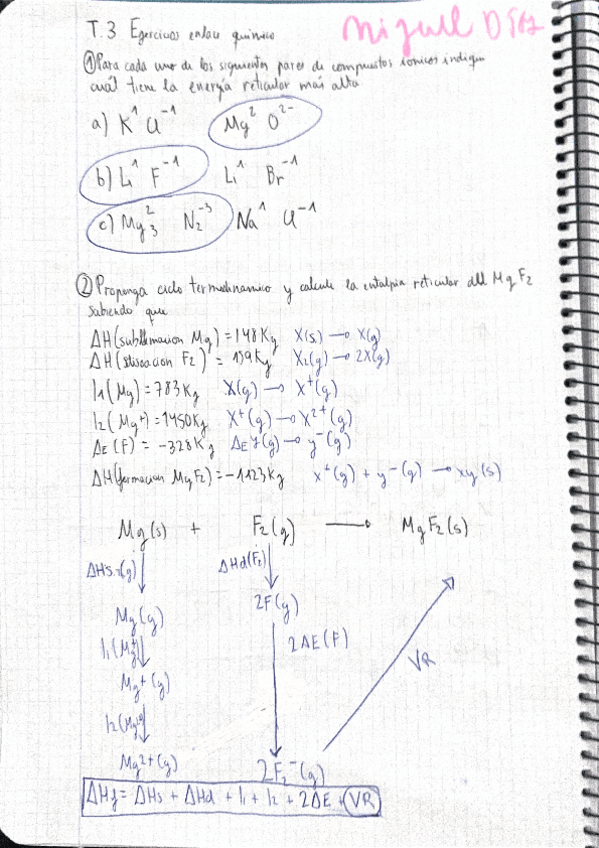 T.3 Ejercicios enlace químico
Miguel Díaz
① Para cada uno de los siguientes pares de compuestos ionicos indique
cuál tiene la energía reticular más alta
a) K¹ Cl⁻¹ Mg² O²⁻
b) Li¹ F⁻¹ Li¹ Br⁻¹
c) Mg₃² N₂⁻³ Na¹ Cl⁻¹
② Proponga ciclo termodinamico y calcule la entalpia reticular del MgF₂
sabiendo que
ΔH (sublimacion Mg) = 148 Kj X(s) → X(g)
ΔH (disociacion F₂) = 159 Kj X₂(g) → 2X(g)
I₁ (Mg) = 783 Kj X(g) → X⁺(g)
I₂ (Mg⁺) = 1450 Kj X⁺(g) → X²⁺(g)
ΔE (F) = -328 Kj ΔE y(g) → y⁻(g)
ΔH (formacion MgF₂) = -1123 Kj x⁺(g) + y⁻(g) → xy(s)
Mg(s) + F₂(g) → MgF₂(s)
ΔHd(F₂)
Mg(g) 2F(g)
2ΔE(F)
Mg+(g) VR
Mg2+(g) 2F₂⁻(g)
ΔHf = ΔHs + ΔHd + I₁ + I₂ + 2ΔE + VR